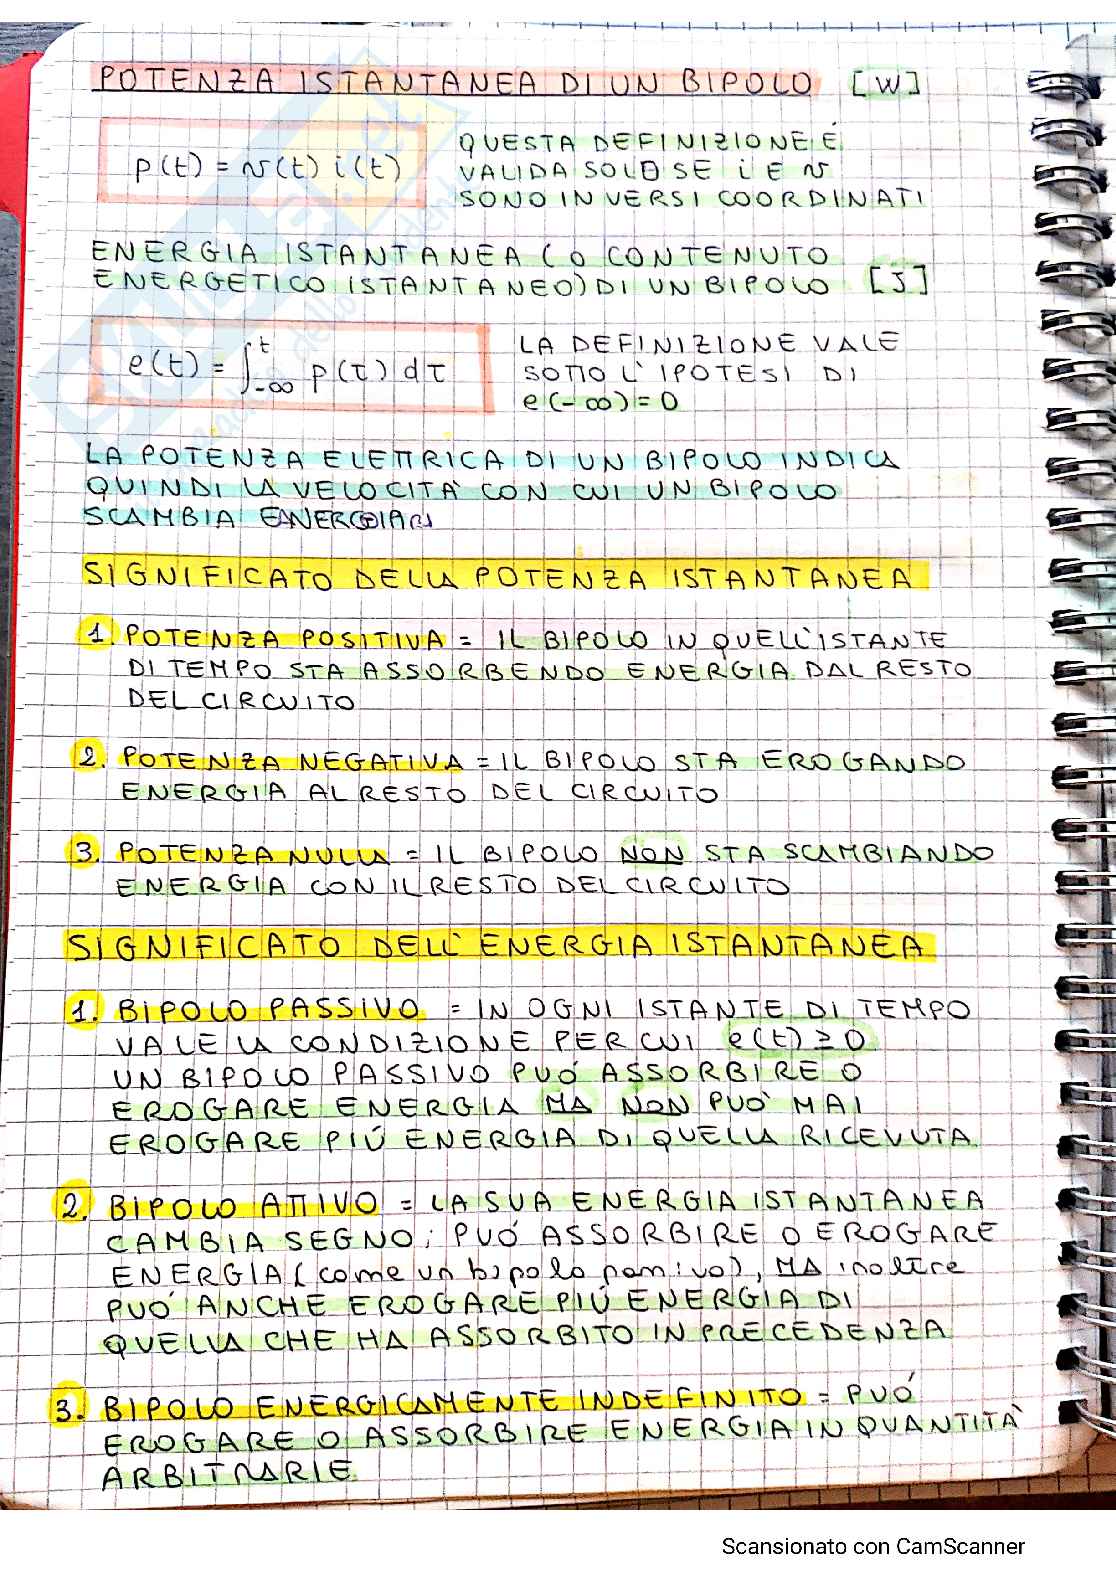 POTENZA ISTANTANEA DI UN BIPOLO [W]
p(t) = v(t) i(t)
QUESTA DEFINIZIONE É
VALIDA SOLO SE i E v
SONO IN VERSI COORDINATI
ENERGIA ISTANTANEA (O CONTENUTO
ENERGETICO ISTANTANEO) DI UN BIPOLO [J]
e(t) = ∫_{-∞}^{t} p(τ) dτ
LA DEFINIZIONE VALE
SOTTO L'IPOTESI DI
e(-∞) = 0
LA POTENZA ELETTRICA DI UN BIPOLO INDICA
QUINDI LA VELOCITÀ CON CUI UN BIPOLO
SCAMBIA ENERGIA
SIGNIFICATO DELLA POTENZA ISTANTANEA
1. POTENZA POSITIVA = IL BIPOLO IN QUELL'ISTANTE
DI TEMPO STA ASSORBENDO ENERGIA DAL RESTO
DEL CIRCUITO
2. POTENZA NEGATIVA = IL BIPOLO STA EROGANDO
ENERGIA AL RESTO DEL CIRCUITO
3. POTENZA NULLA = IL BIPOLO NON STA SCAMBIANDO
ENERGIA CON IL RESTO DEL CIRCUITO
SIGNIFICATO DELL'ENERGIA ISTANTANEA
1. BIPOLO PASSIVO = IN OGNI ISTANTE DI TEMPO
VALE LA CONDIZIONE PER CUI e(t) ≥ 0
UN BIPOLO PASSIVO PUÓ ASSORBIRE O
EROGARE ENERGIA MA NON PUÒ MAI
EROGARE PIÚ ENERGIA DI QUELLA RICEVUTA
2. BIPOLO ATTIVO = LA SUA ENERGIA ISTANTANEA
CAMBIA SEGNO; PUÓ ASSORBIRE O EROGARE
ENERGIA (come un bipolo passivo), MA inoltre
PUÓ ANCHE EROGARE PIÚ ENERGIA DI
QUELLA CHE HA ASSORBITO IN PRECEDENZA
3. BIPOLO ENERGICAMENTE INDEFINITO = PUÓ
EROGARE O ASSORBIRE ENERGIA IN QUANTITÀ
ARBITRARIE
Scansionato con CamScanner